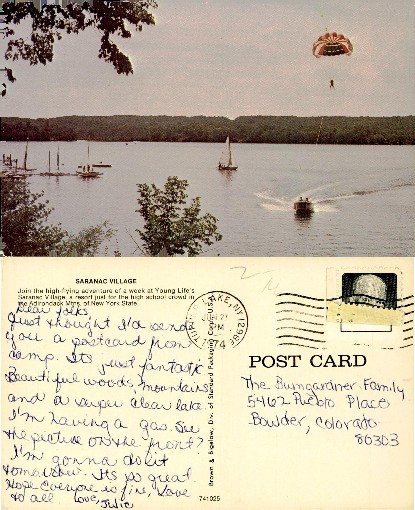 SARANAC VILLAGE
Join the high-flying adventure of a week at Young Life's
Saranac Village, a resort just for the high school crowd in
the Adirondack Mtns. of New York State.
Dear folks,
Just thought I'd send
you a postcard from
camp. Its just fantastic
Beautiful woods, mountains
and a super clear lake.
I'm having a gas. See
the picture on the front?
I'm gonna do it
tomorrow. Its so great.
Hope everyone is fine, Love
to all Love, Julie
741025
Brown & Bigelow, Div. of Standard Packaging Corp. U.S.A.
LAKE, NY 1298
PM
1974
POST CARD
The Bumgardner Family
5462 Pueblo Place
Boulder, Colorado
80303